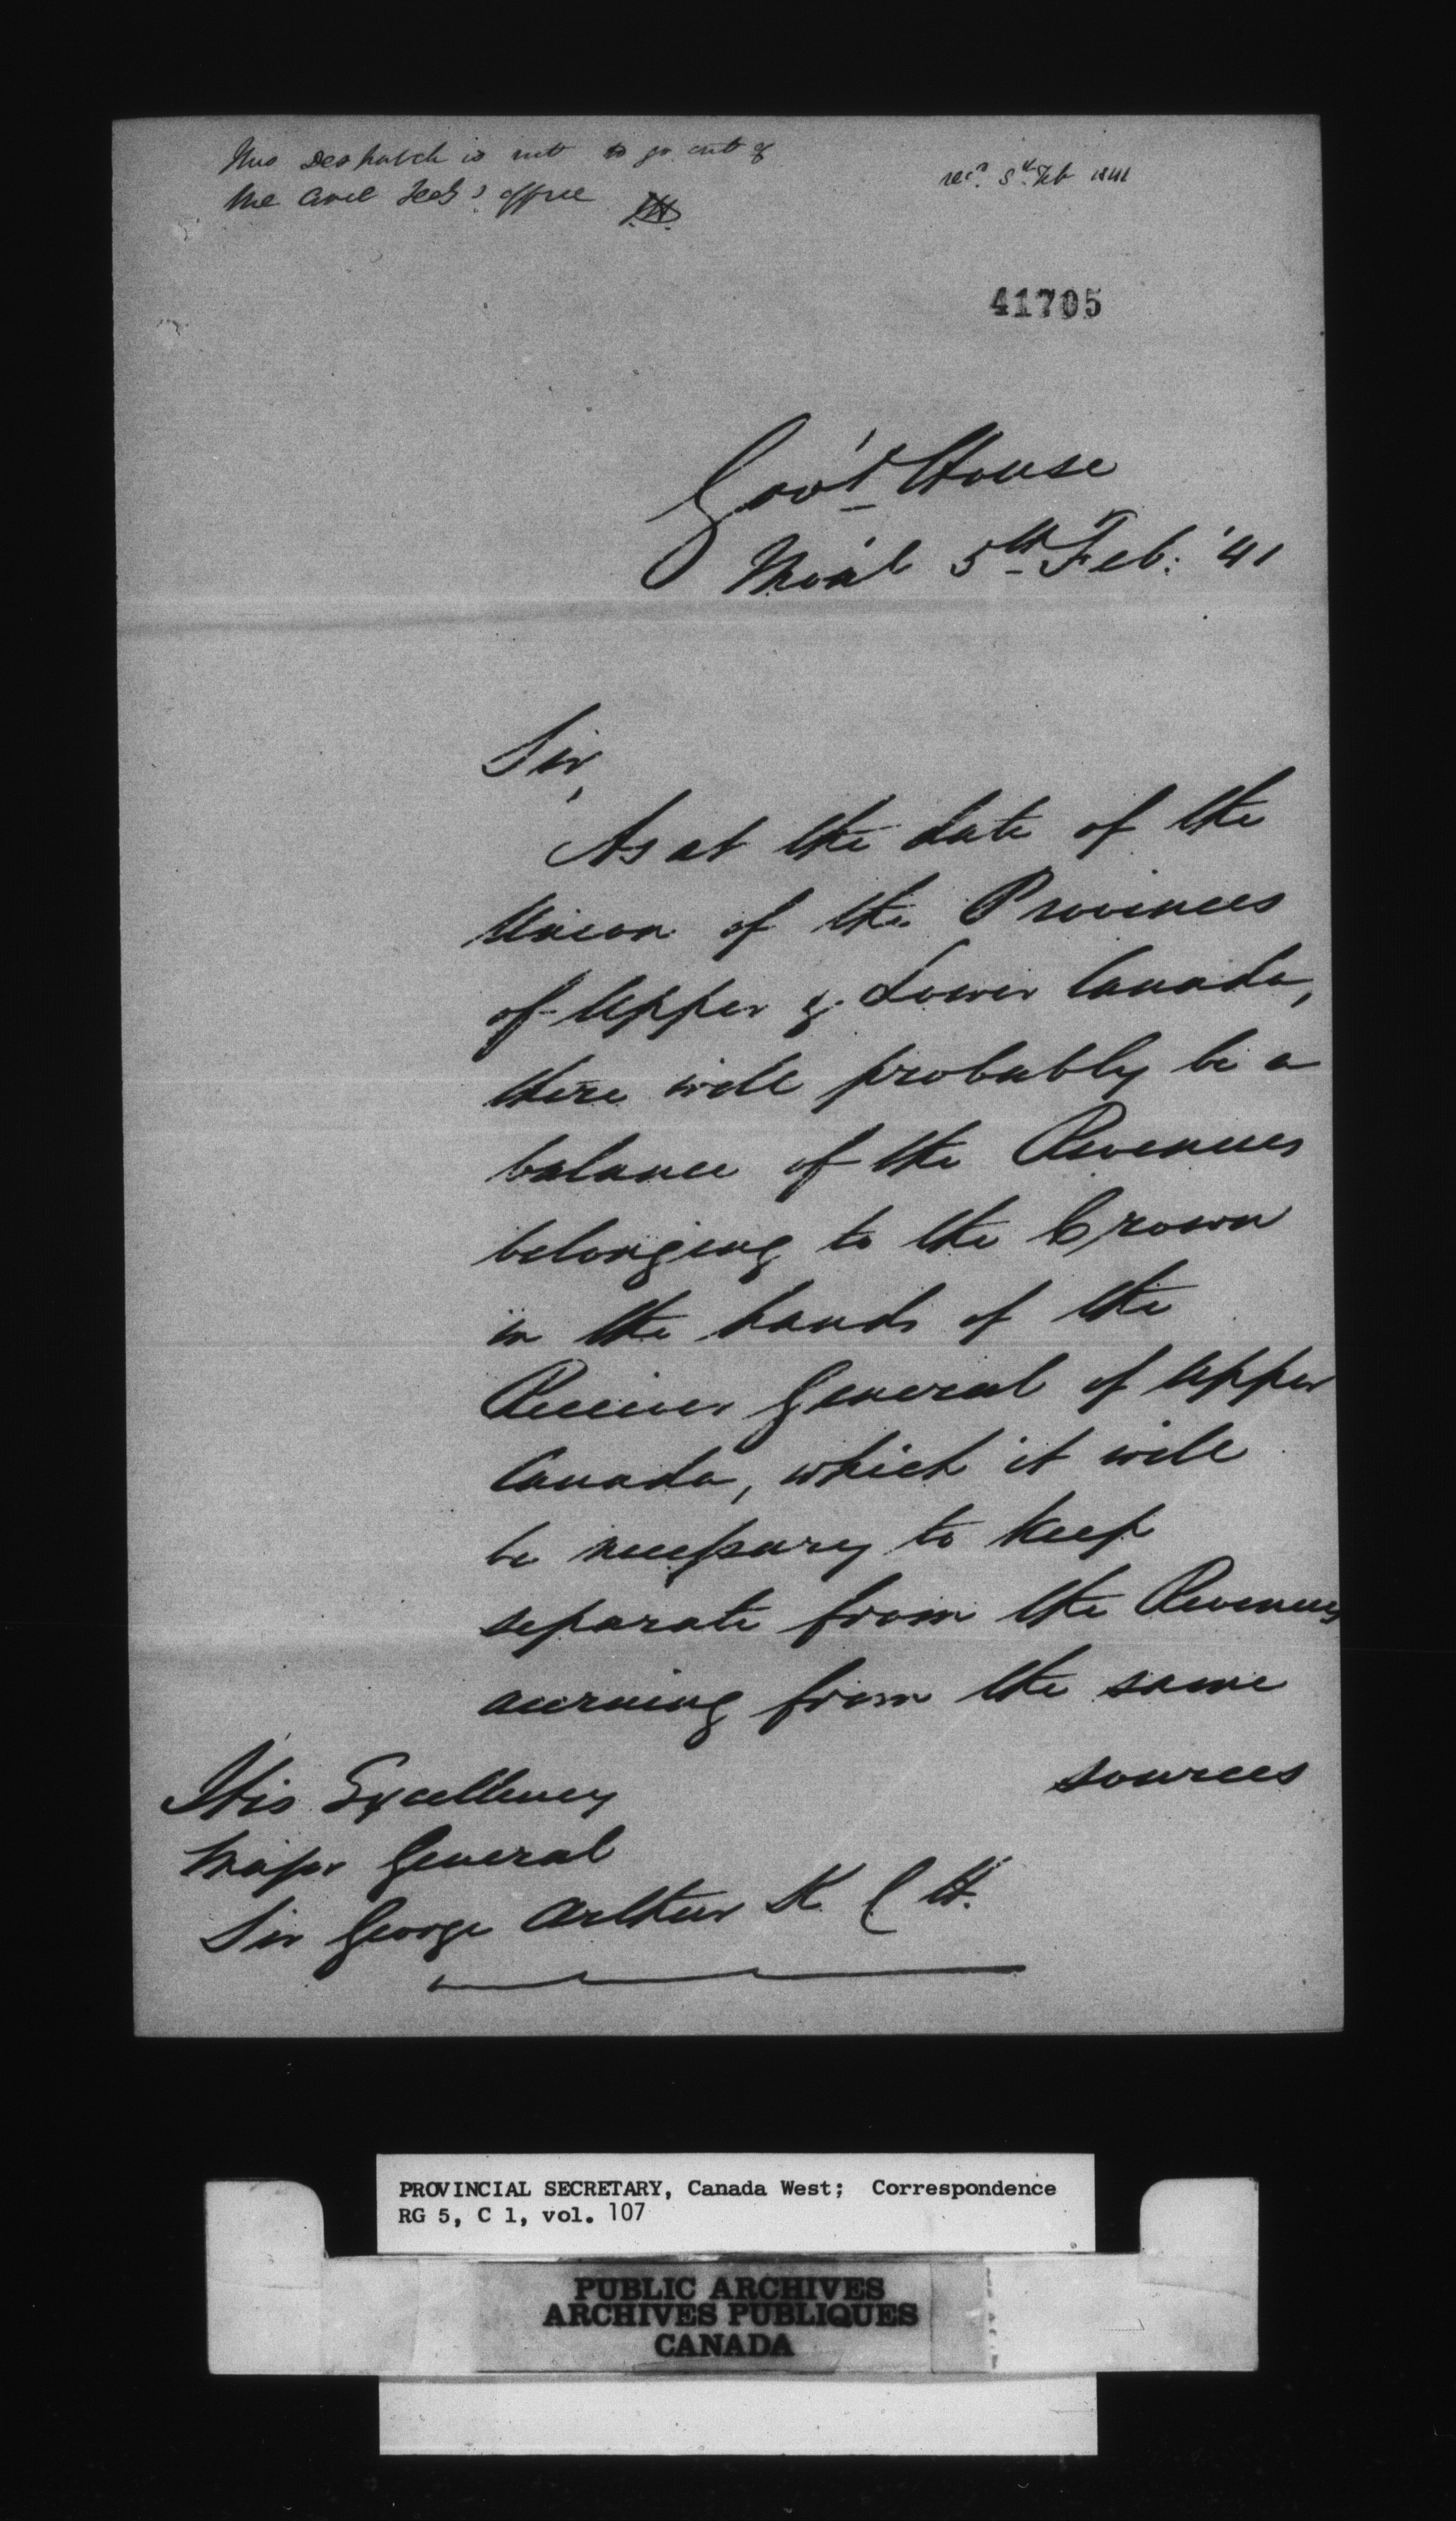 This Despatch is not to go out of
the Civil Secy's office
recd. 8th Feb 1841
41705
Gov't House
Mon'l 5th Feb: '41
Sir,
As at the date of the
Union of the Provinces
of Upper & Lower Canada,
there will probably be a
balance of the Revenues
belonging to the Crown
in the hands of the
Receiver General of Upper
Canada, which it will
be necessary to keep
separate from the Revenues
accruing from the same
sources
His Excellency
Major General
Sir George Arthur K C H.
PROVINCIAL SECRETARY, Canada West; Correspondence
RG 5, C 1, vol. 107
PUBLIC ARCHIVES
ARCHIVES PUBLIQUES
CANADA